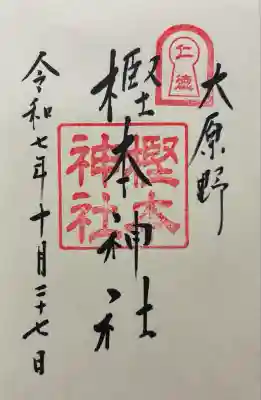 仁德
大原野
樫本神社
樫本
神社
令和七年十月二十七日